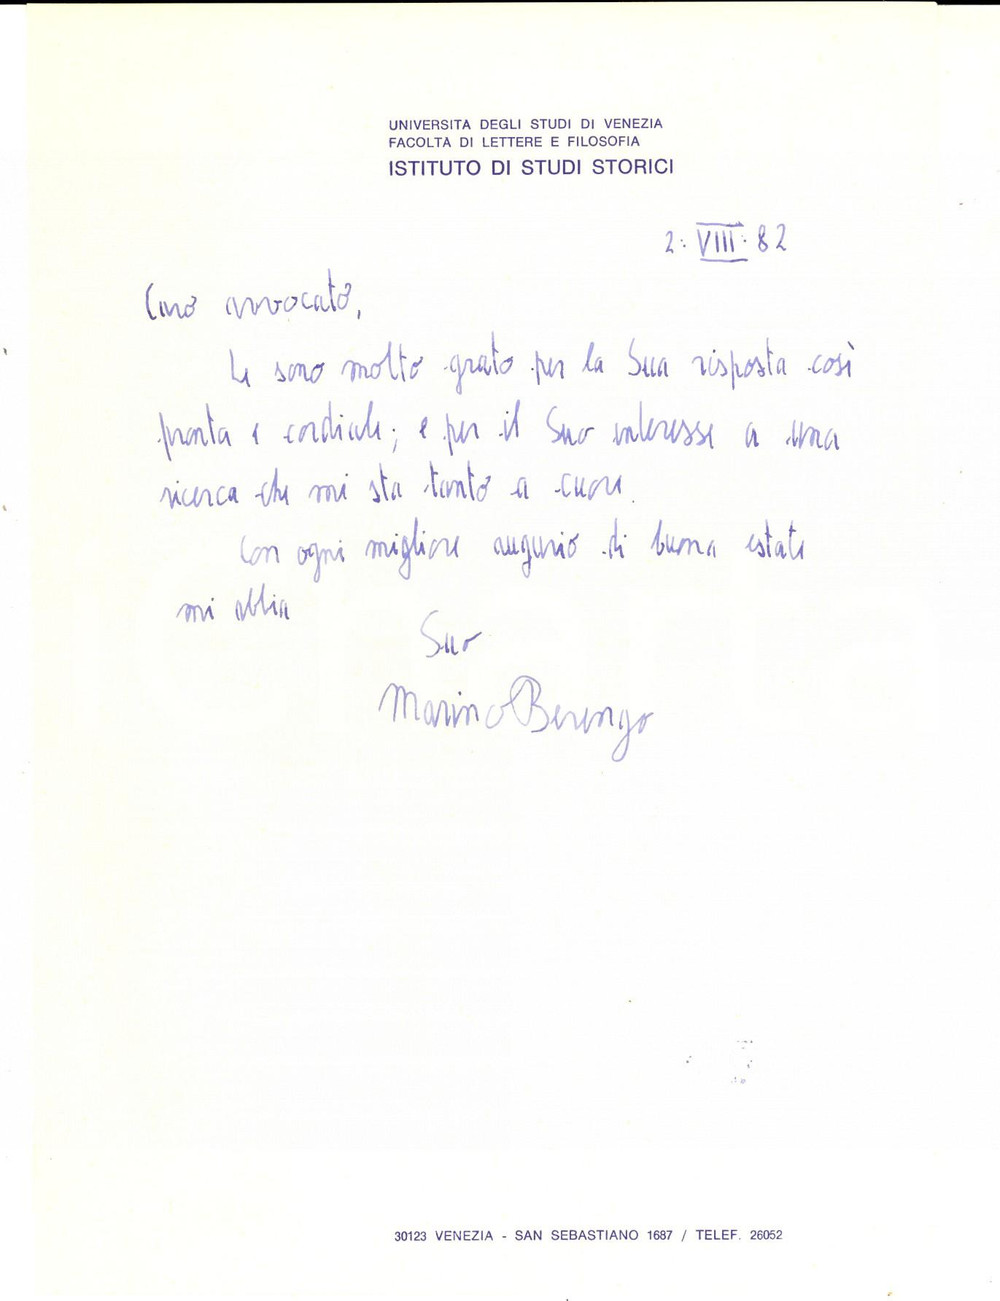 UNIVERSITA DEGLI STUDI DI VENEZIA
FACOLTA DI LETTERE E FILOSOFIA
ISTITUTO DI STUDI STORICI
2. VIII. 82
Caro avvocato,
Le sono molto grato per la Sua risposta così
pronta e cordiale; e per il Suo interesse a una
ricerca che mi sta tanto a cuore.
Con ogni migliore augurio di buona estate
mi abbia
Suo
Marino Berengo
30123 VENEZIA - SAN SEBASTIANO 1687 / TELEF. 26052